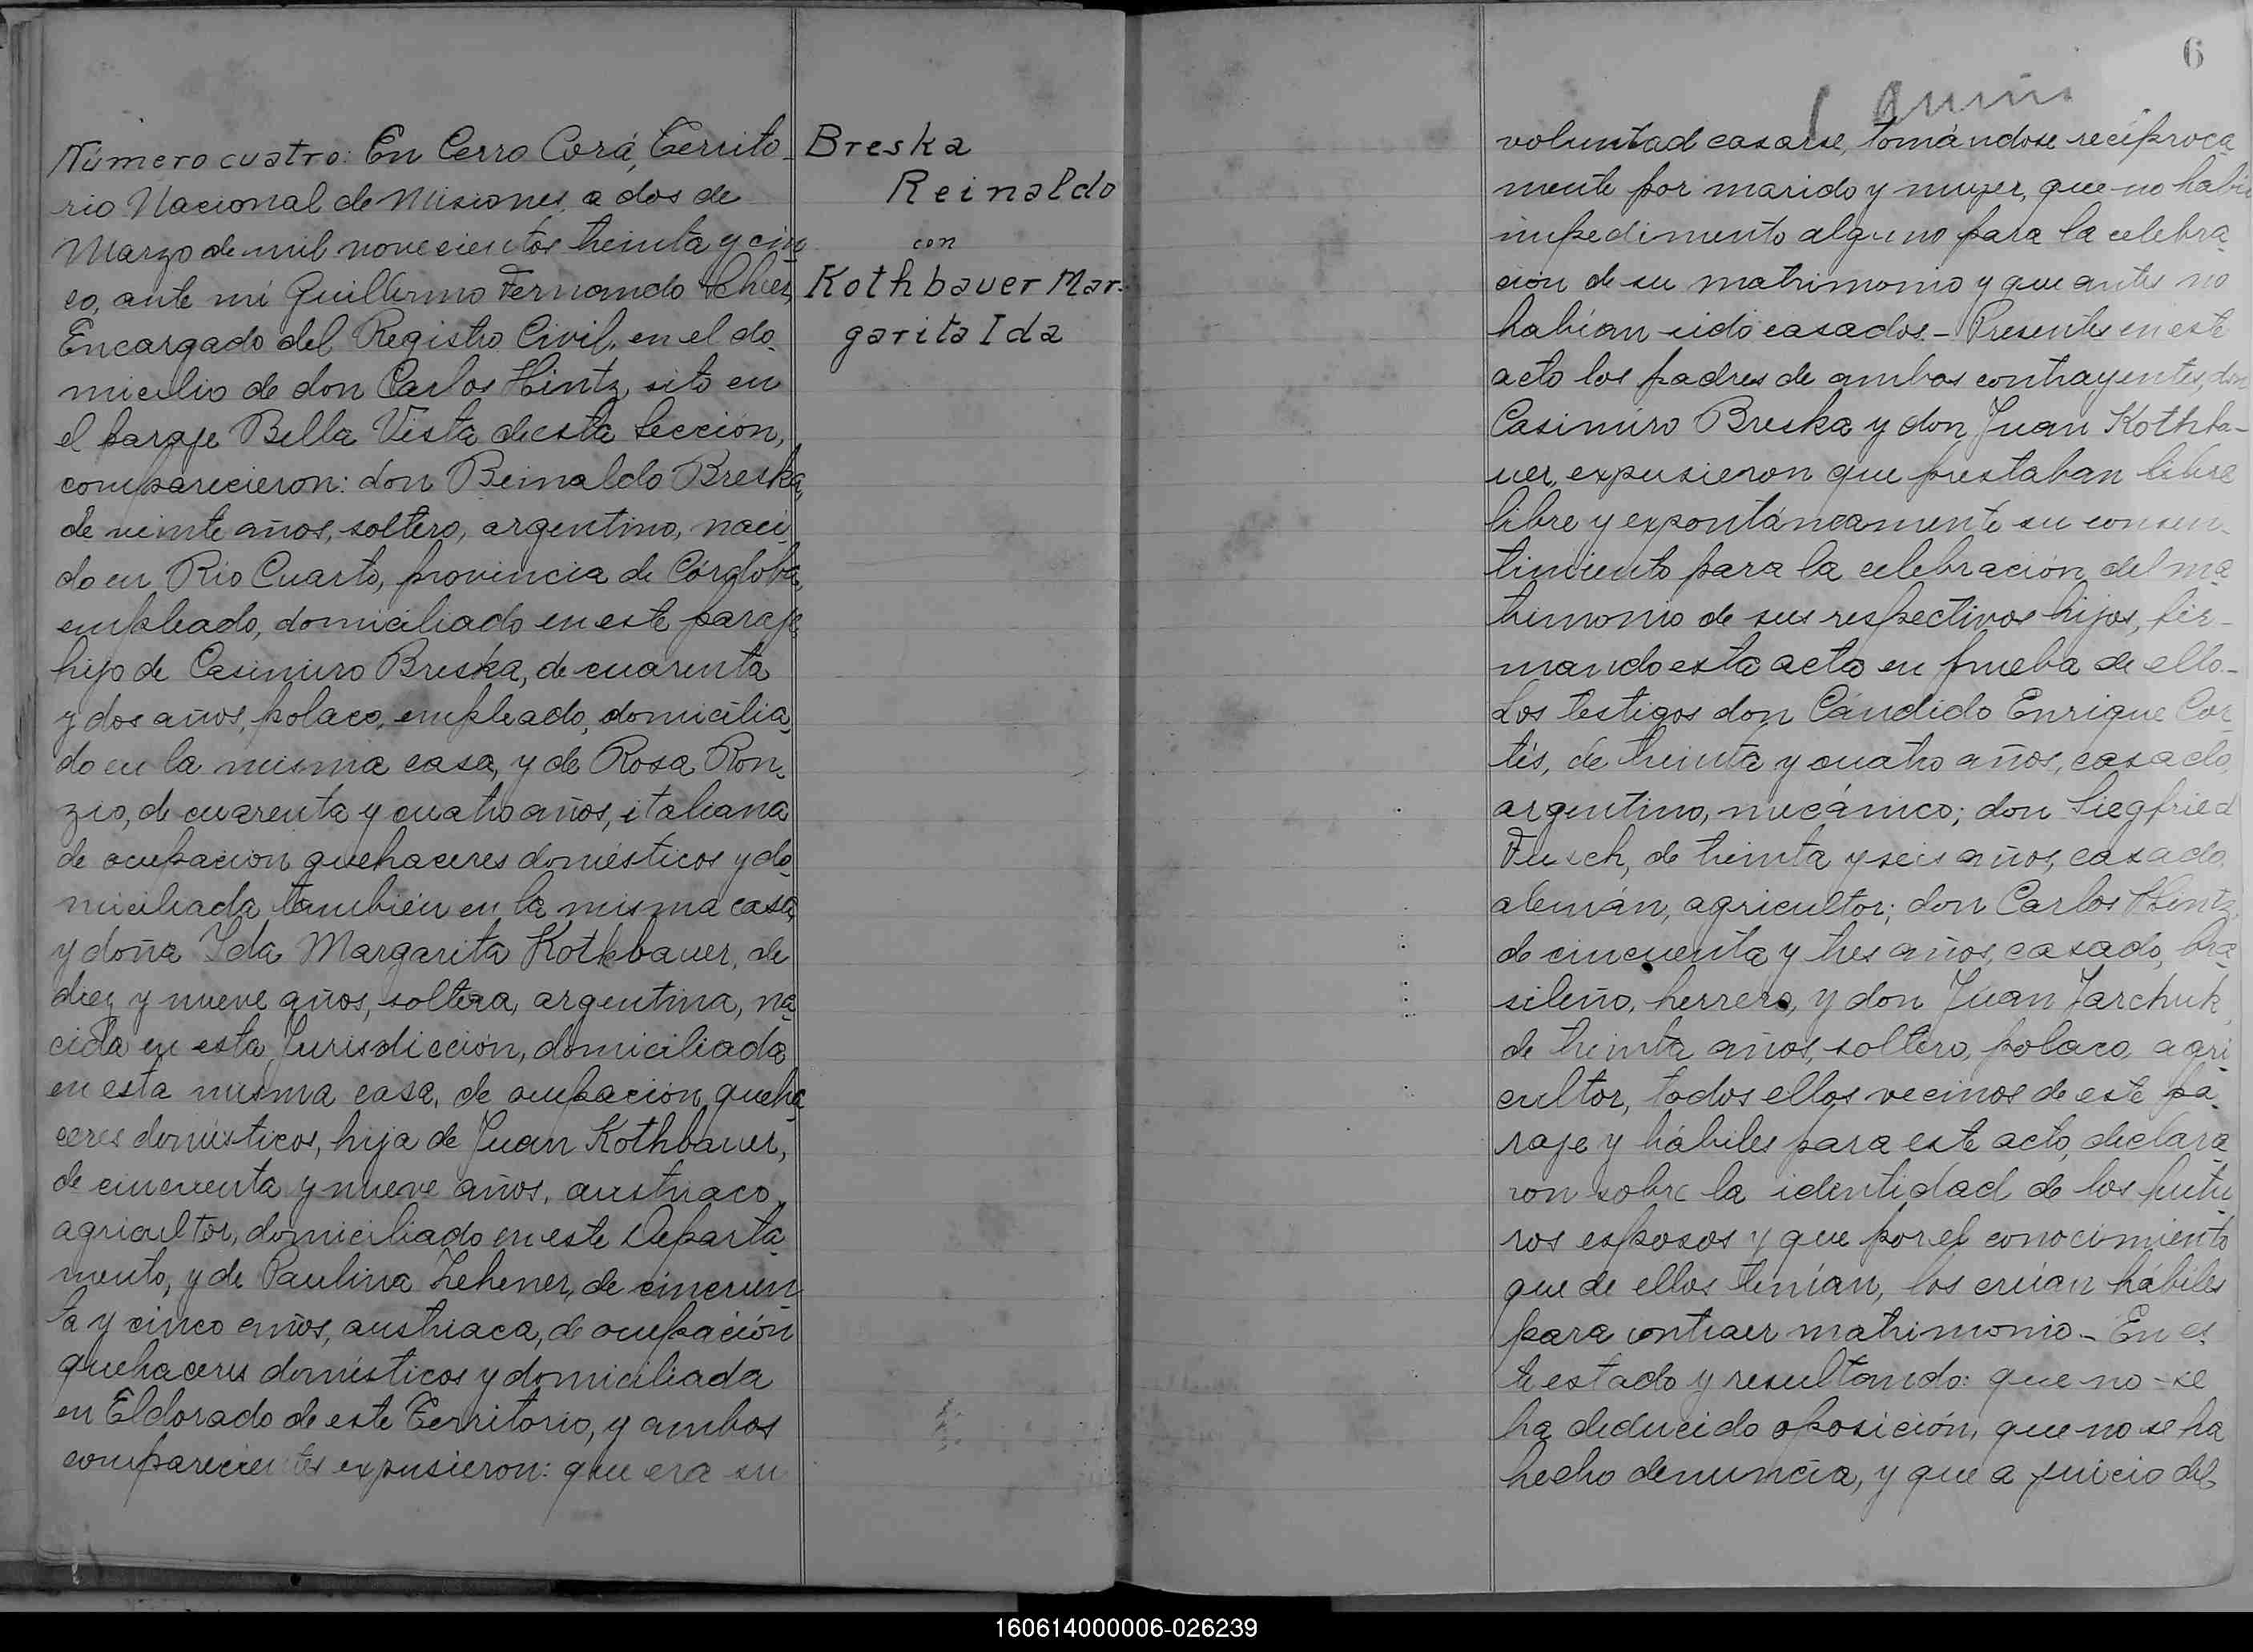 Número cuatro: En Cerro Corá, Territo-
rio Nacional de Misiones, a dos de
Marzo de mil novecientos treinta y cin-
co, ante mí Guillermo Fernando
Encargado del Registro Civil, en el do-
micilio de don Carlos Hintz, sito en
el paraje Bella Vista de esta Sección,
comparecieron: don Reinaldo Breska,
de veinte años, soltero, argentino, naci-
do en Rio Cuarto, provincia de Córdoba,
empleado, domiciliado en este paraje,
hijo de Casimiro Breska, de cuarenta
y dos años, polaco, empleado, domicilia-
do en la misma casa, y de Rosa Ron-
zio, de cuarenta y cuatro años, italiana
de ocupación quehaceres domésticos y do-
miciliada también en la misma casa,
y doña Ida Margarita Kothbauer, de
diez y nueve años, soltera, argentina, na-
cida en esta Jurisdicción, domiciliada
en esta misma casa, de ocupación queha-
ceres domésticos, hija de Juan Kothbauer,
de cincuenta y nueve años, austriaco,
agricultor, domiciliado en este Departa-
mento, y de Paulina Lehener, de cincuen-
ta y cinco años, austriaca, de ocupación
quehaceres domésticos y domiciliada
en Eldorado de este Territorio, y ambos
comparecientes expusieron: que era su
Breska
Reinaldo
con
Kothbauer Mar-
garita Ida
6
voluntad casarse, tomándose recíproca-
mente por marido y mujer, que no había
impedimento alguno para la celebra-
ción de su matrimonio y que antes no
habían sido casados.- Presentes en este
acto los padres de ambos contrayentes, don
Casimiro Breska y don Juan Kothba-
uer, expusieron que prestaban libre
libre y expontáneamente su consen-
timiento para la celebración del ma-
trimonio de sus respectivos hijos, fir-
mando esta acta en prueba de ello.-
Los testigos don Cándido Enrique Cor-
tés, de treinta y cuatro años, casado,
argentino, mecánico; don Siegfried
Fusch, de treinta y seis años, casado,
alemán, agricultor; don Carlos Hintz,
de cincuenta y tres años, casado, bra-
sileño, herrero, y don Juan Jarchuk,
de treinta años, soltero, polaco, agri-
cultor, todos ellos vecinos de este pa-
raje y hábiles para este acto, declara-
ron sobre la identidad de los futu-
ros esposos y que por el conocimiento
que de ellos tenían, los creían hábiles
para contraer matrimonio.- En es-
te estado y resultando: que no se
ha deducido oposición, que no se ha
hecho denuncia, y que a juicio del
160614000006-026239